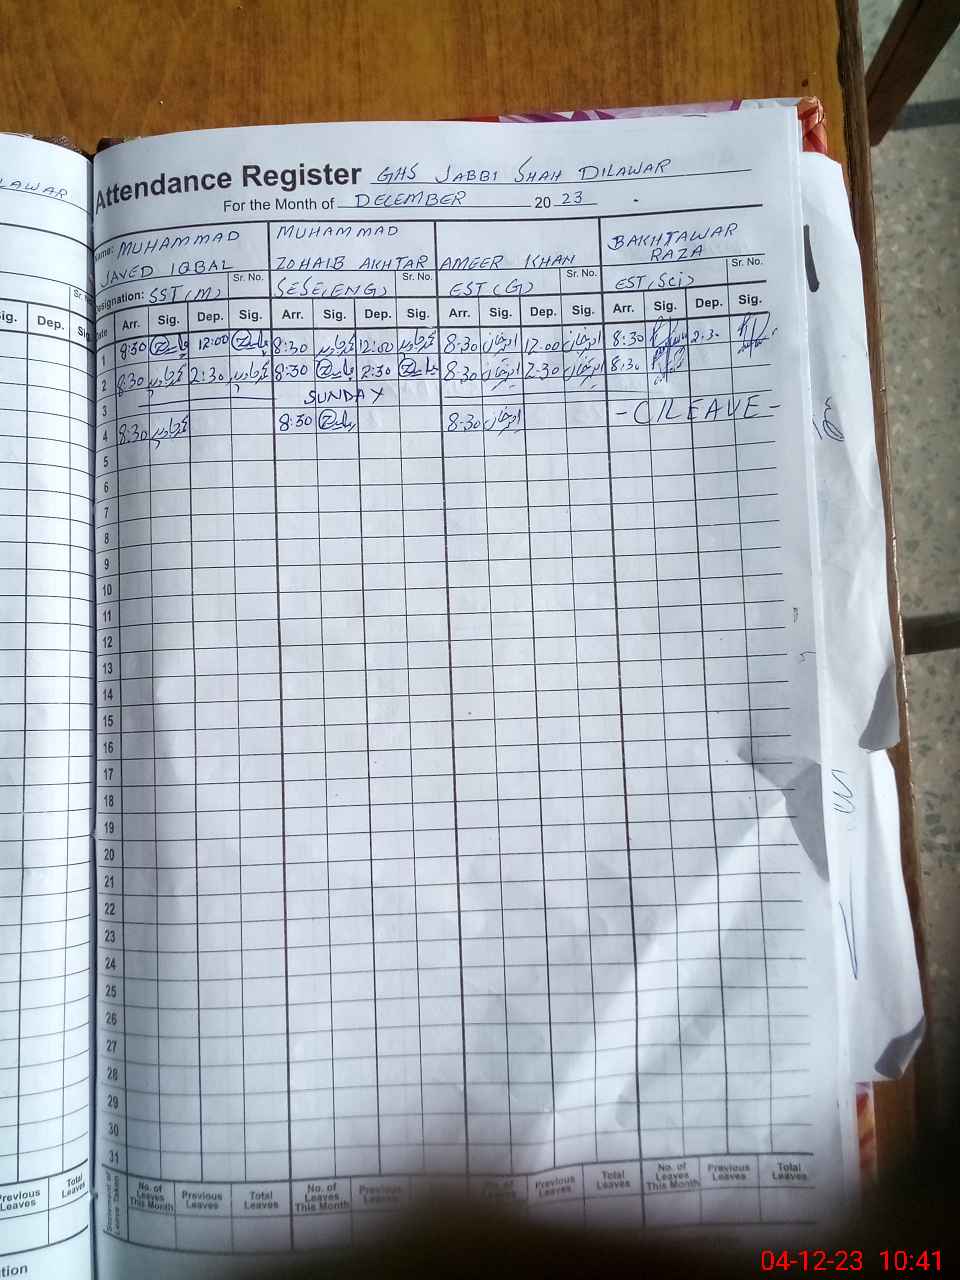 LAWAR
Attendance Register GHS JABBI SHAH DILAWAR
For the Month of DECEMBER 2023
Name: MUHAMMAD JAVED IQBAL
MUHAMMAD ZOHAIB AKHTAR
AMEER KHAN
BAKHTAWAR RAZA
Designation: SST(M) Sr. No. SESE(ENG) EST(G) Sr. No. EST(Sci) Sr. No.
Sig. Dep. Sig.
Date Arr. Sig. Dep. Sig. Arr. Sig. Dep. Sig. Arr. Sig. Dep. Sig. Arr. Sig. Dep. Sig.
1 8:30 12:00 8:30 12:00 8:30 12:00 8:30 2:30
2 8:30 2:30 8:30 2:30 8:30 2:30 8:30
3 SUNDAY
4 8:30 8:30 8:30 - C/LEAVE -
5
6
7
8
9
10
11
12
13
14
15
16
17
18
19
20
21
22
23
24
25
26
27
28
29
30
31
Previous Leaves Total Leaves
Leave Taken No. of Leaves This Month Previous Leaves Total Leaves No. of Leaves This Month Previous Previous Leaves Total Leaves No. of Leaves This Month Previous Leaves Total Leaves
tion
04-12-23 10:41